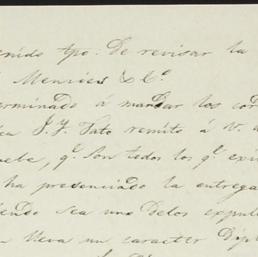 enido tpo. De revisar la
Menvies & Cº
terminado á mandar los cor
J. Y. Tato remito á V. a
uebe, q.e son todos los q.e exi
ha presenciado la entrega
iendo sea uno Delos expul
lleva un caracter Dipl